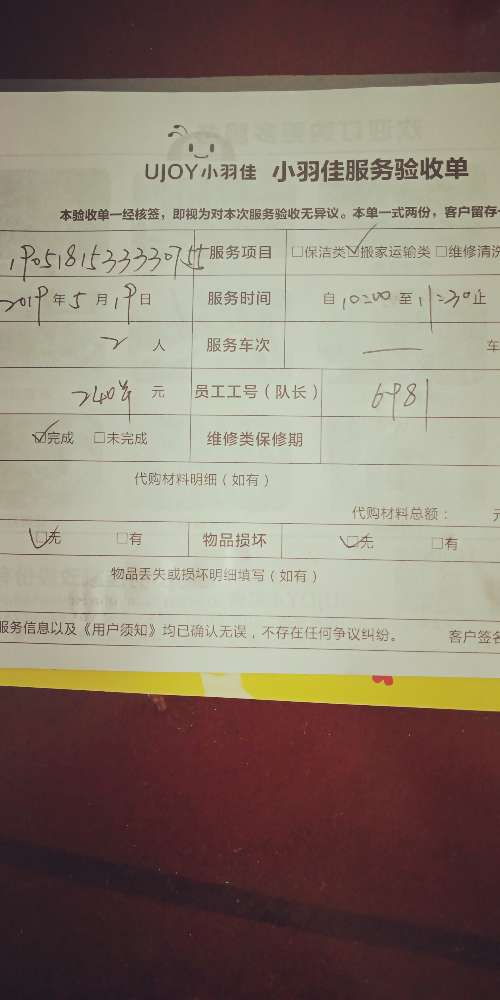 UJOY小羽佳 小羽佳服务验收单
本验收单一经核签，即视为对本次服务验收无异议。本单一式两份，客户留存一
服务项目 □保洁类☑搬家运输类□维修清洗
2019年5月19日 服务时间 自10:00至11:30止
2人 服务车次 — 车
240 元 员工工号（队长） 6981
☑完成 □未完成 维修类保修期
代购材料明细（如有）
代购材料总额： 元
☑无 □有 物品损坏 ☑无 □有
物品丢失或损坏明细填写（如有）
服务信息以及《用户须知》均已确认无误，不存在任何争议纠纷。 客户签名